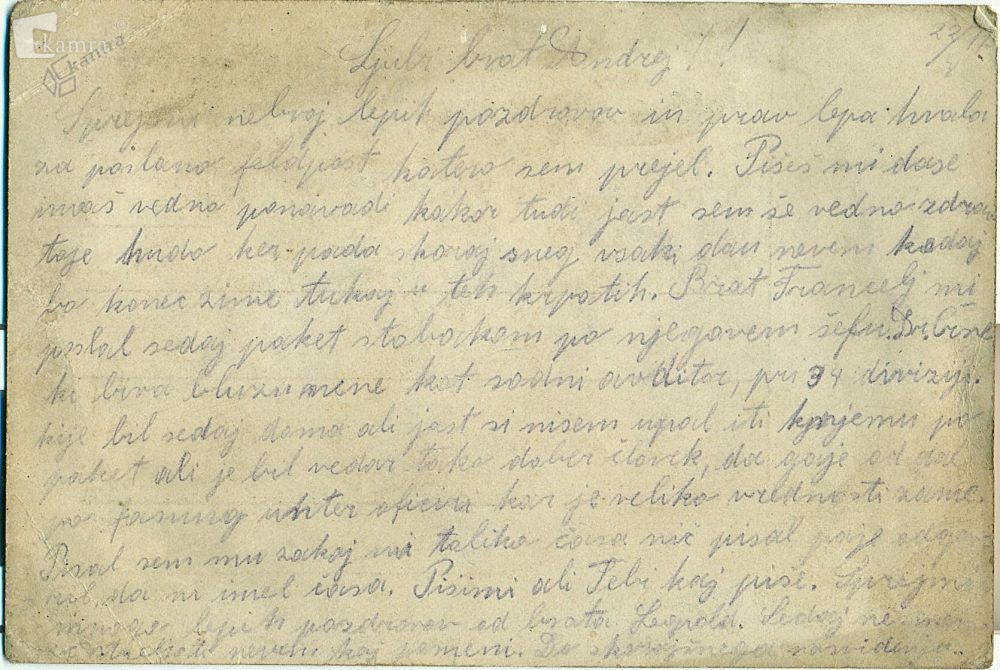 kamra
kamra
Ljubi brat Andrej!!
Sprejmi nebroj lepih pozdravov in prav lepa hvala
za poslano feldpost katero sem prejel. Pišeš mi dase
imaš vedno ponavadi kakor tudi jast sem še vedno zdrav
toje hudo ker pada skoraj sneg vsaki dan nevem kedaj
bo konec zime tukaj v teh krpatih. Brat Francelj mi
poslal sedaj paket stobakom po njegovem šefu. Dr.
ki biva bluzu mene kot sodni avditor, pri 34 diviziji.
kije bil sedaj doma ali jast si nisem upal iti knjemu po
paket ali je bil vedar tako dober človek, da gaje od dal
po fasung unter oficiru kar je veliko vrednosti zame.
Pisal sem mu zakaj mi toliko časa nič pisal paje odgo-
voril, da ni imel časa. Pišimi ali Tebi kaj piše. Sprejmi
mnogo lepih pozdravov od brata Leopolda. Sedaj
nevem kaj pomeni. Do skorajšnega nasvidenja..